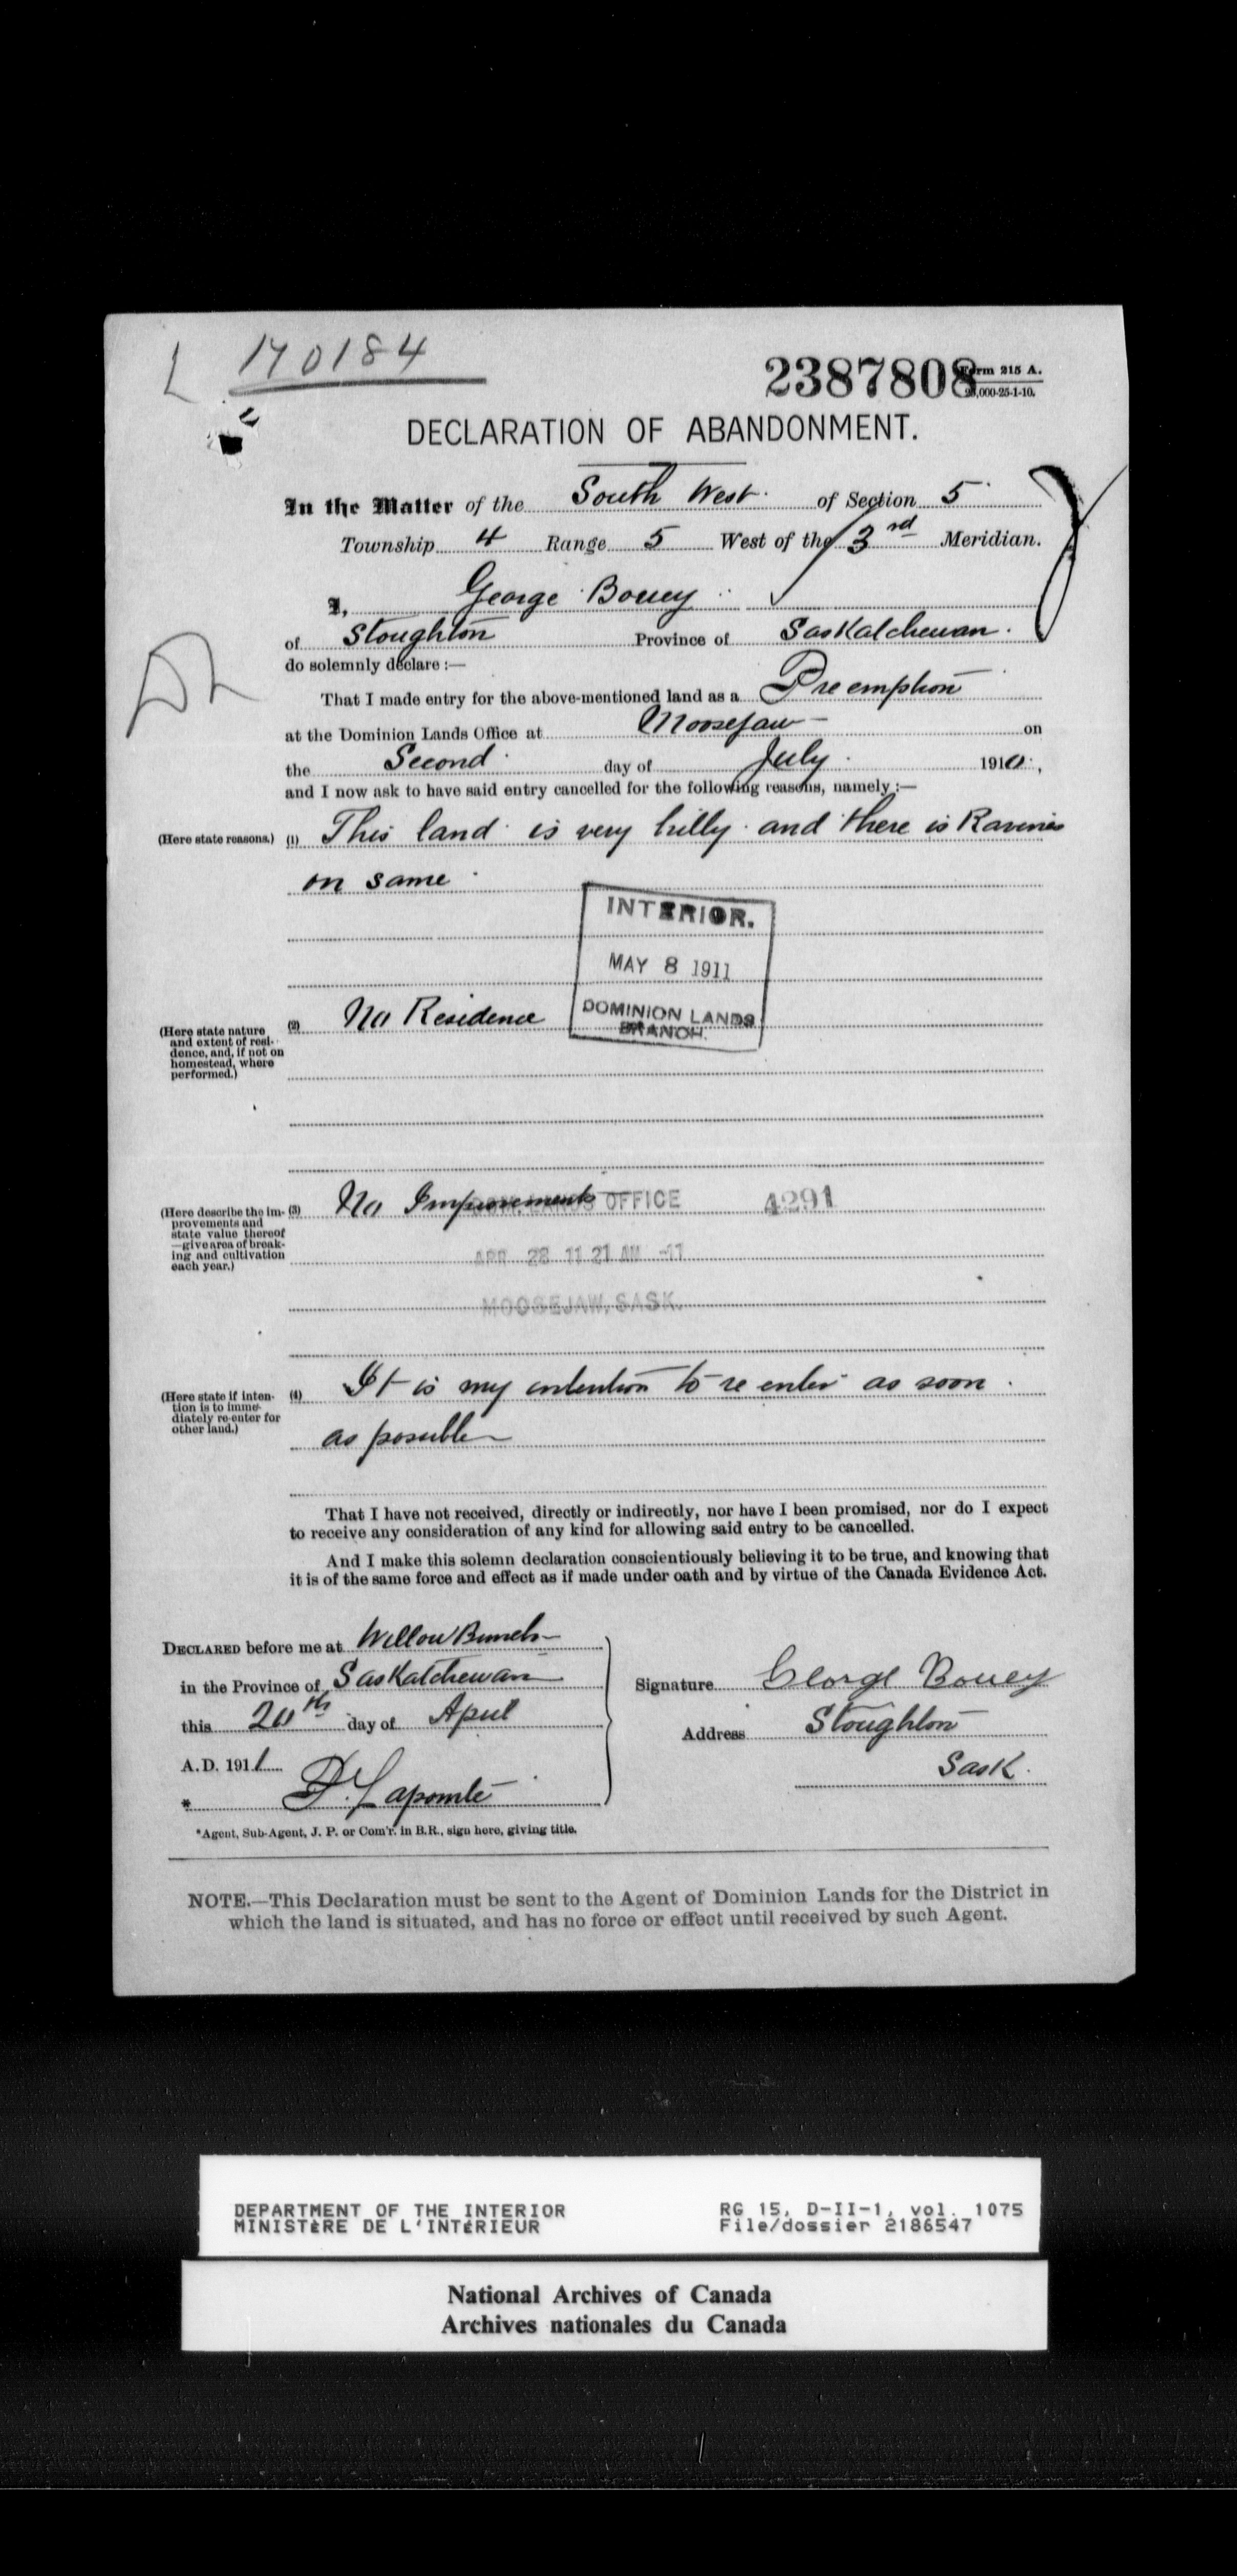 L 170184
2387808 Form 215 A.
25,000-25-1-10.
DECLARATION OF ABANDONMENT.
In the Matter of the South West of Section 5
Township 4 Range 5 West of the 3rd Meridian.
I, George Bouey
of Stoughton Province of Saskatchewan.
do solemnly declare :—
That I made entry for the above-mentioned land as a Preemption
at the Dominion Lands Office at Moosejaw on
the Second day of July 1910,
and I now ask to have said entry cancelled for the following reasons, namely :—
(Here state reasons.) (1) This land is very hilly and there is Ravines
on same
INTERIOR.
MAY 8 1911
DOMINION LANDS
BRANCH.
(Here state nature and extent of residence, and, if not on homestead, where performed.) (2) No Residence
(Here describe the im- (3) No Improvements
provements and
state value thereof
—give area of break-
ing and cultivation
each year.)
DOM. LANDS OFFICE 4291
APR 28 11 21 AM -11
MOOSEJAW, SASK.
(Here state if inten- (4) It is my intention to re enter as soon
tion is to imme-
diately re-enter for
other land.)
as possible
That I have not received, directly or indirectly, nor have I been promised, nor do I expect
to receive any consideration of any kind for allowing said entry to be cancelled.
And I make this solemn declaration conscientiously believing it to be true, and knowing that
it is of the same force and effect as if made under oath and by virtue of the Canada Evidence Act.
DECLARED before me at Willow Bunch
in the Province of Saskatchewan
this 20th day of April
A.D. 1911
Signature George Bouey
Address Stoughton
Sask.
*Agent, Sub-Agent, J. P. or Com'r. in B.R., sign here, giving title.
NOTE.—This Declaration must be sent to the Agent of Dominion Lands for the District in
which the land is situated, and has no force or effect until received by such Agent.
DEPARTMENT OF THE INTERIOR
MINISTÈRE DE L'INTÉRIEUR
RG 15, D-II-1, vol. 1075
File/dossier 2186547
National Archives of Canada
Archives nationales du Canada